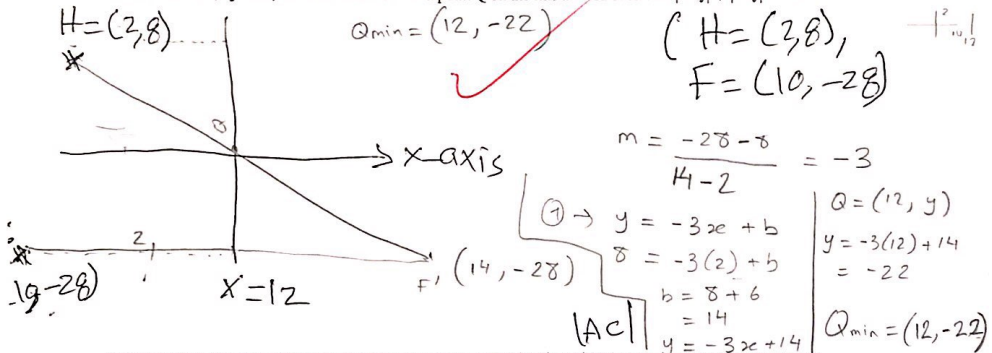 H=(2,8)
Qmin = (12, -22)
( H=(2,8),
F=(10,-28)
Q
x-axis
2
X=12
F', (14, -28)
m = \frac{-28-8}{14-2} = -3
① → y = -3x + b
8 = -3(2) + b
b = 8 + 6
= 14
y = -3x + 14
|AC|
Q = (12, y)
y = -3(12) + 14
= -22
Qmin = (12, -22)